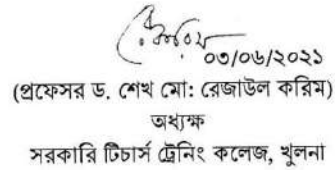 ০৩/০৬/২০২১
(প্রফেসর ড. শেখ মো: রেজাউল করিম)
অধ্যক্ষ
সরকারি টিচার্স ট্রেনিং কলেজ, খুলনা